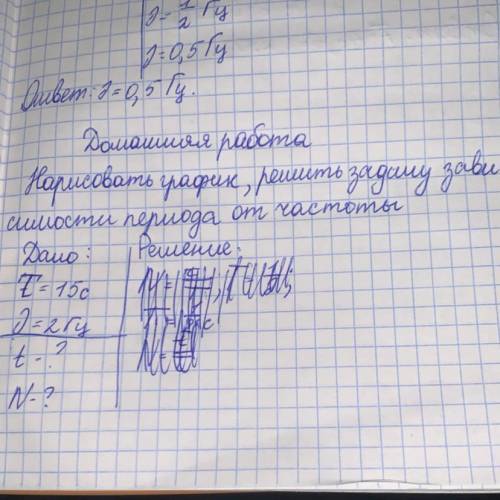 J = 1/2 Гц
J = 0,5 Гц
Ответ: J = 0,5 Гц.
Домашняя работа
Нарисовать график, решить задачу зави
симости периода от частоты
Дано: Решение:
T = 15с
J = 2 Гц
t - ?
N - ?